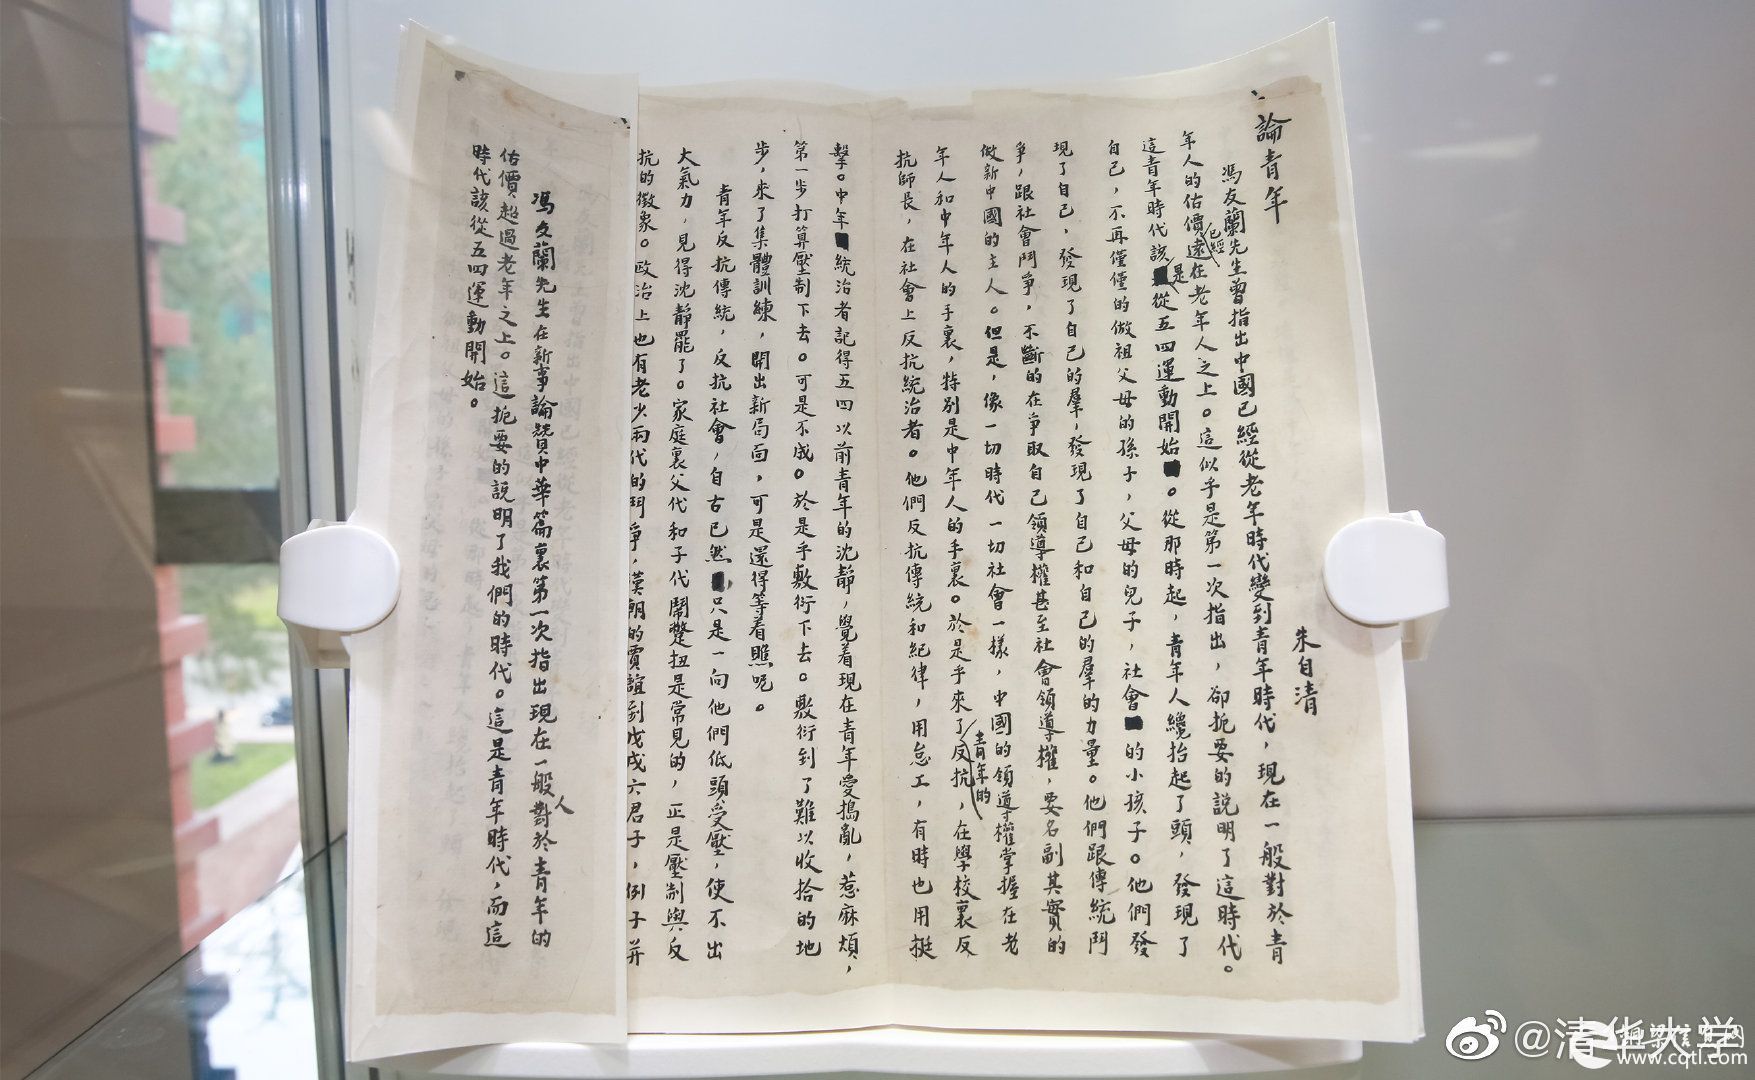 論青年
朱自清
馮友蘭先生曾指出中國已經從老年時代變到青年時代，現在一般對於青
年人的估價已經遠在老年人之上。這似乎是第一次指出，卻扼要的說明了這時代。
這青年時代該是從五四運動開始。從那時起，青年人纔抬起了頭，發現了
自己，不再僅僅的做祖父母的孫子，父母的兒子，社會的小孩子。他們發
現了自己，發現了自己的羣，發現了自己和自己的羣的力量。他們跟傳統鬥
爭，跟社會鬥爭，不斷的在爭取自己領導權甚至社會領導權，要名副其實的
做新中國的主人。但是，像一切時代一切社會一樣，中國的領導權掌握在老
年人和中年人的手裏，特別是中年人的手裏。於是乎來了青年的反抗，在學校裏反
抗師長，在社會上反抗統治者。他們反抗傳統和紀律，用怠工，有時也用挺
擊。中年統治者記得五四以前青年的沈靜，覺着現在青年愛搗亂，惹麻煩，
第一步打算壓制下去。可是不成。於是乎敷衍下去。敷衍到了難以收拾的地
步，來了集體訓練，開出新局面，可是還得等着瞧呢。
青年反抗傳統，反抗社會，自古已然，只是一向他們低頭受壓，使不出
大氣力，見得沈靜罷了。家庭裏父代和子代鬧蹩扭是常見的，正是壓制與反
抗的徵象。政治上也有老少兩代的鬥爭，漢朝的賈誼到戊戌六君子，例子並
馮友蘭先生在新事論贊中華篇裏第一次指出現在一般人對於青年的
估價超過老年之上。這扼要的說明了我們的時代。這是青年時代，而這
時代該從五四運動開始。
@清华大学
www.cqtl.com